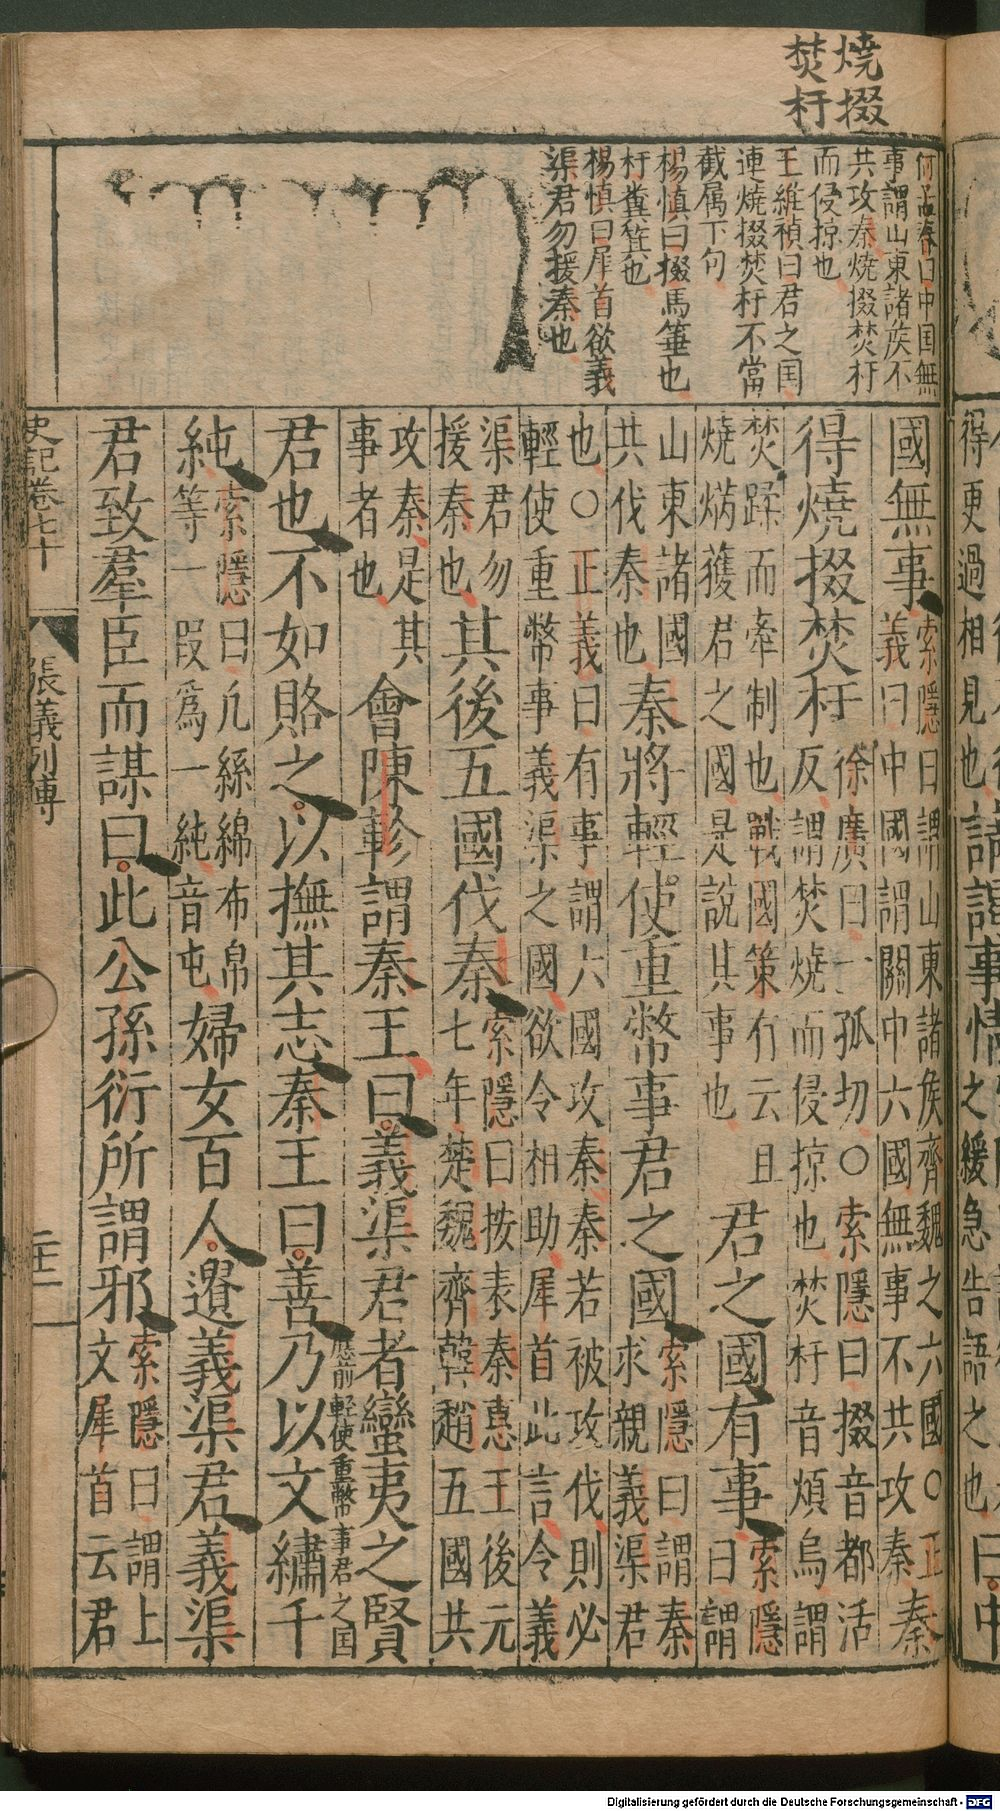 燒掇
焚杅
何孟春曰中国無
事謂山東諸矦不
共攻秦燒掇焚杅
而侵掠也
王維禎曰君之国
連燒掇焚杅不當
截属下句
楊慎曰掇馬箠也
杅糞箕也
楊慎曰犀首欲義
渠君勿援秦也
得更過相見也 請謁事情 之緩急告語之也 曰中
國無事 索隱曰謂山東諸矦齊魏之六國〇正 義曰中國謂關中六國無事不共攻秦 秦
得燒掇焚杅 徐廣曰一孤切〇索隱曰掇音都活 反謂焚燒而侵掠也焚杅音煩烏謂
焚蹂而牽制也戰國策有云且 燒焫獲君之國是說其事也 君之國有事 索隱 曰謂
山東諸國 共伐秦也 秦將輕使重幣事君之國 索隱曰謂秦 求親義渠君
也〇正義曰有事謂六國攻秦秦若被攻伐則必 輕使重幣事義渠之國欲令相助犀首此言令義
渠君勿 援秦也 其後五國伐秦 索隱曰按表秦惠王後元 七年楚魏齊韓趙五國共
攻秦是其 事者也 會陳軫謂秦王曰義渠君者蠻夷之賢
應前輕使重幣事君之国
君也不如賂之以撫其志秦王曰善乃以文繡千
純 索隱曰凡絲綿布帛 等一叚爲一純音屯 婦女百人遺義渠君義渠
君致羣臣而謀曰此公孫衍所謂邪 索隱曰謂上 文犀首云君
史記卷七十 張義列傳
Digitalisierung gefördert durch die Deutsche Forschungsgemeinschaft - DFG